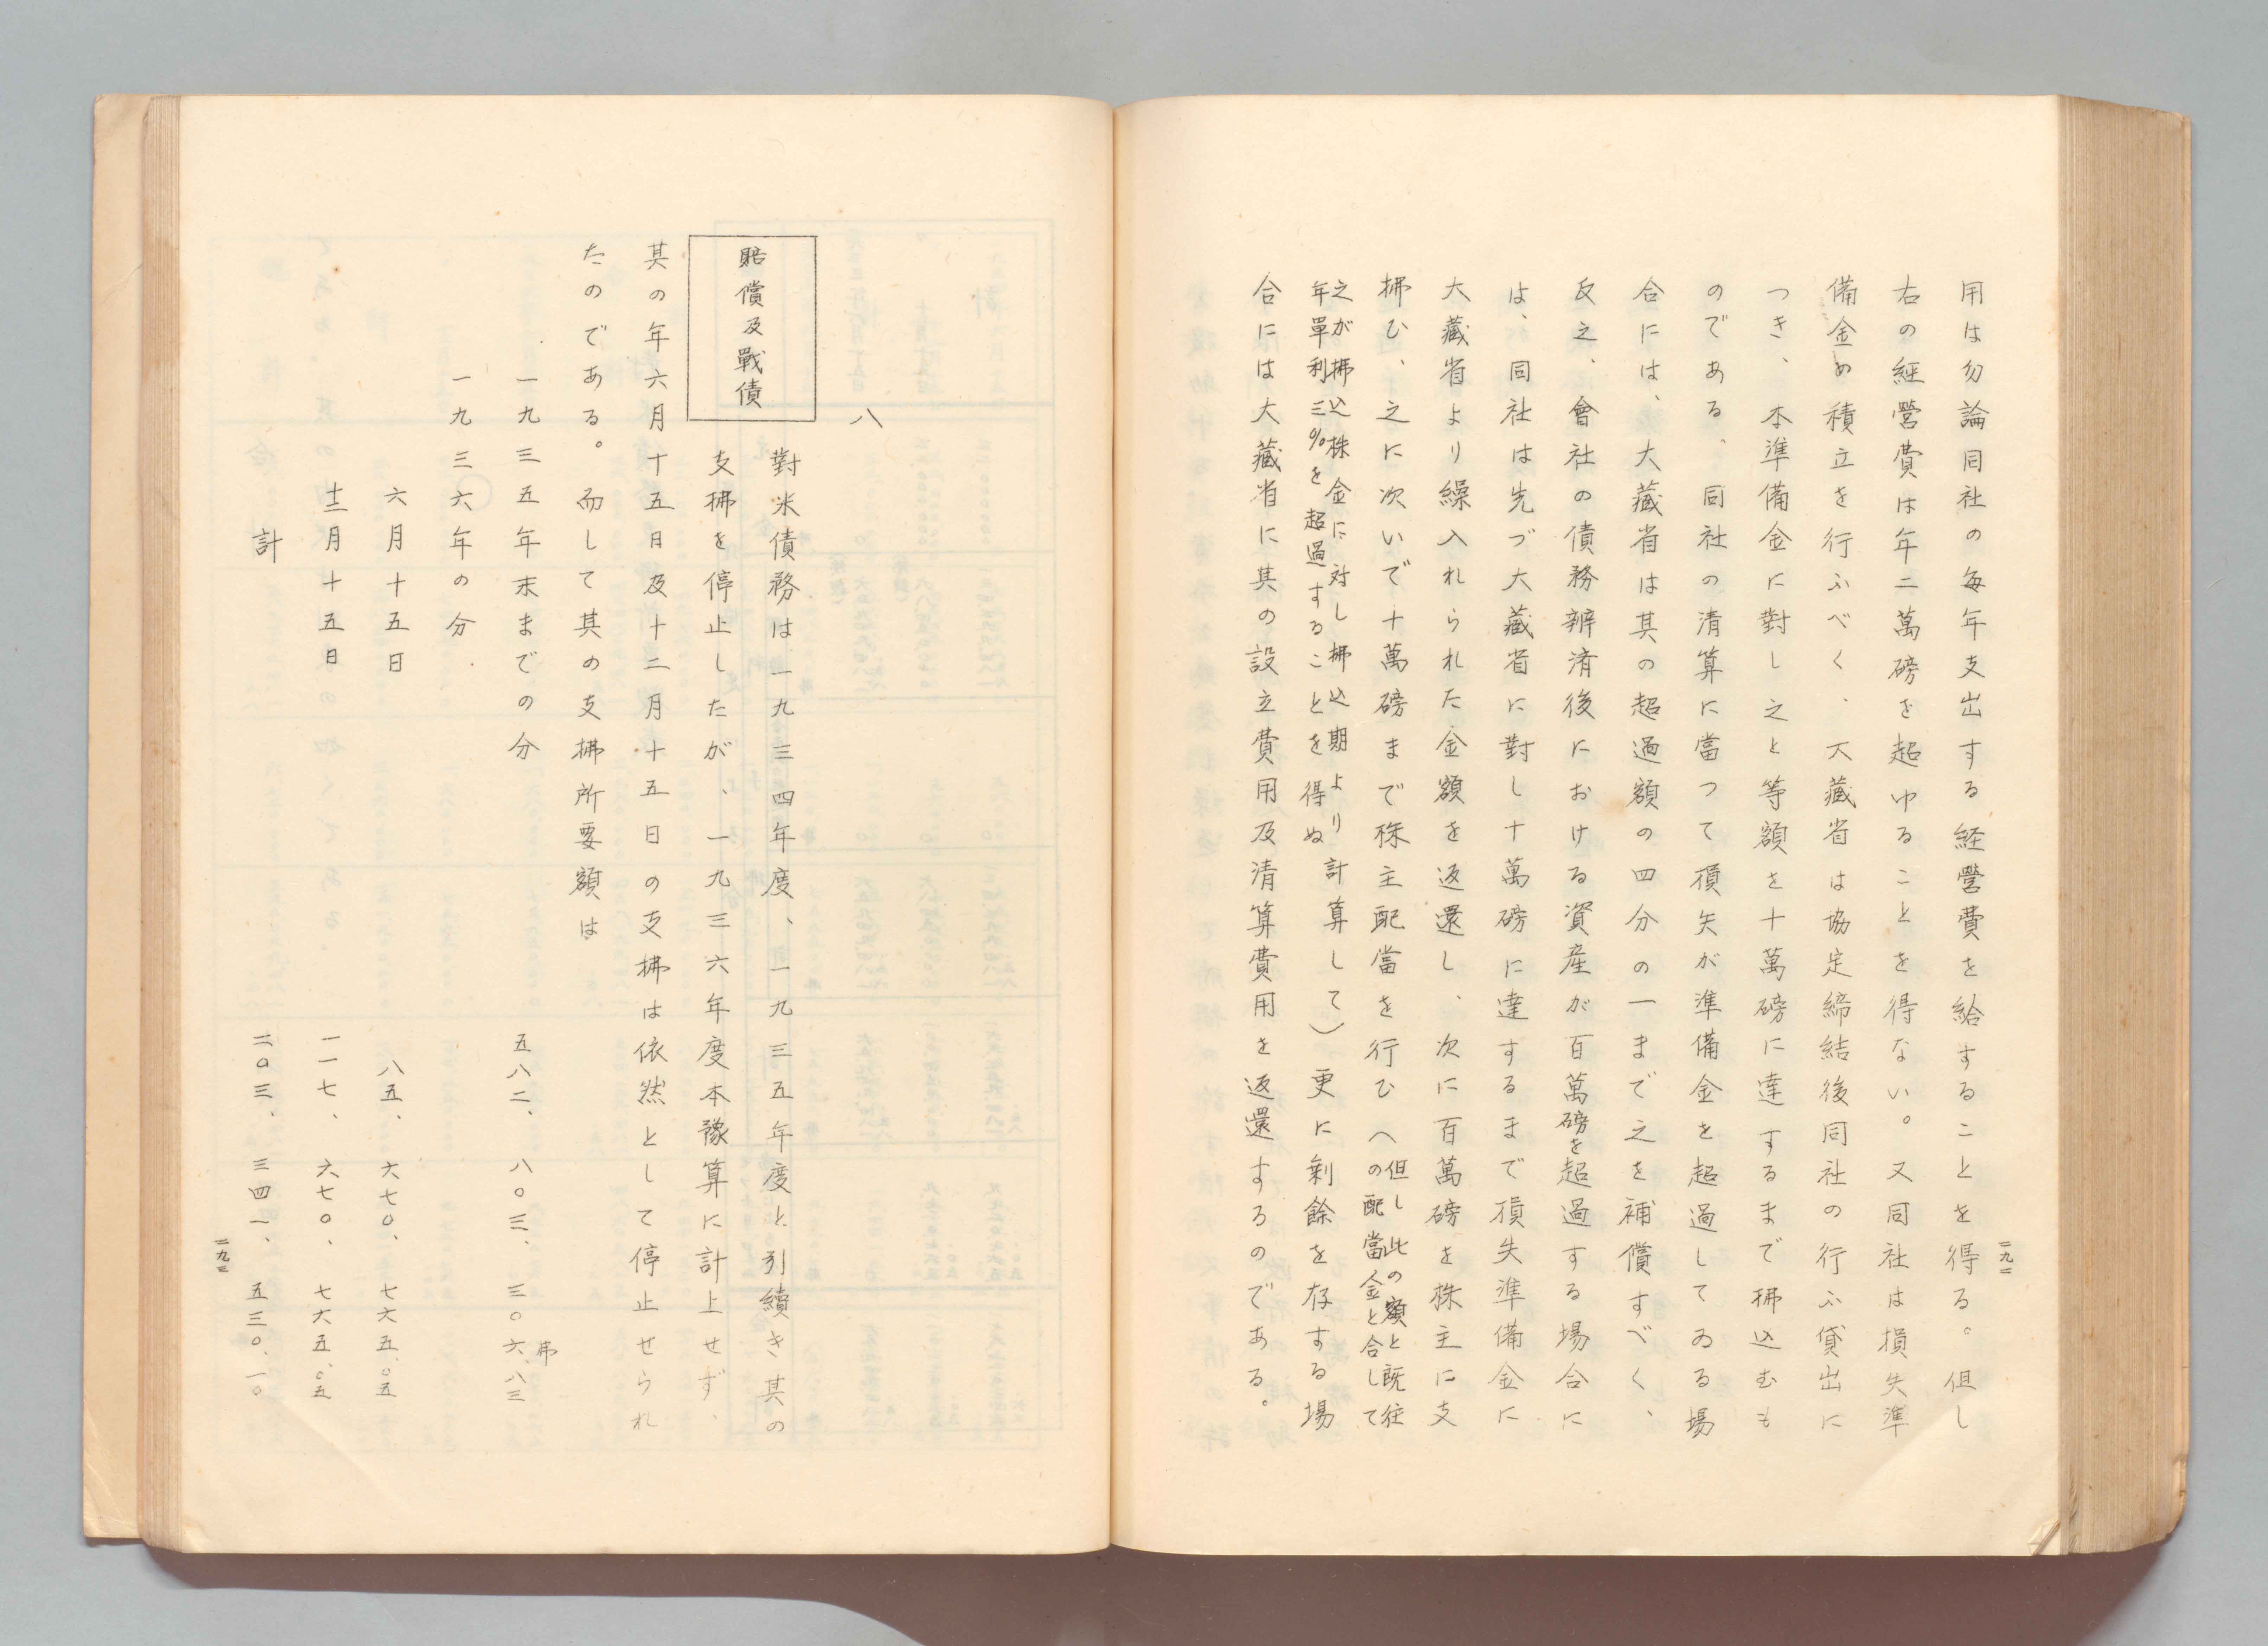 用は勿論同社の毎年支出する経營費を給することを得る。但し
右の経營費は年二萬磅を超ゆることを得ない。又同社は損失準
備金の積立を行ふべく、大藏省は協定締結後同社の行ふ貸出に
つき、本準備金に對し之と等額を十萬磅に達するまで拂込むも
のである、同社の清算に當つて損失が準備金を超過してゐる場
合には、大藏省は其の超過額の四分の一まで之を補償すべく、
反之、會社の債務辨済後における資産が百萬磅を超過する場合に
は、同社は先づ大藏省に對し十萬磅に達するまで損失準備金に
大藏省より繰入れられた金額を返還し、次に百萬磅を株主に支
拂ひ、之に次いで十萬磅まで株主配當を行ひ（但し此の額と既往
の配當金と合して
之が拂込株金に対し拂込期より計算して）
年單利三%を超過することを得ぬ
更に剩餘を存する場
合には大藏省に其の設立費用及清算費用を返還するのである。
二九二
八
賠償及戰債
對米債務は一九三四年度、一九三五年度と引續き其の
支拂を停止したが、一九三六年度本豫算に計上せず、
其の年六月十五日及十二月十五日の支拂は依然として停止せられ
たのである。而して其の支拂所要額は
一九三五年末までの分 五八二、八〇三、三〇六.八三
弗
一九三六年の分
六月十五日 八五、六七〇、七六五.〇五
十二月十五日 一一七、六七〇、七六五.〇五
計 二〇三、三四一、五三〇.一〇
二九三